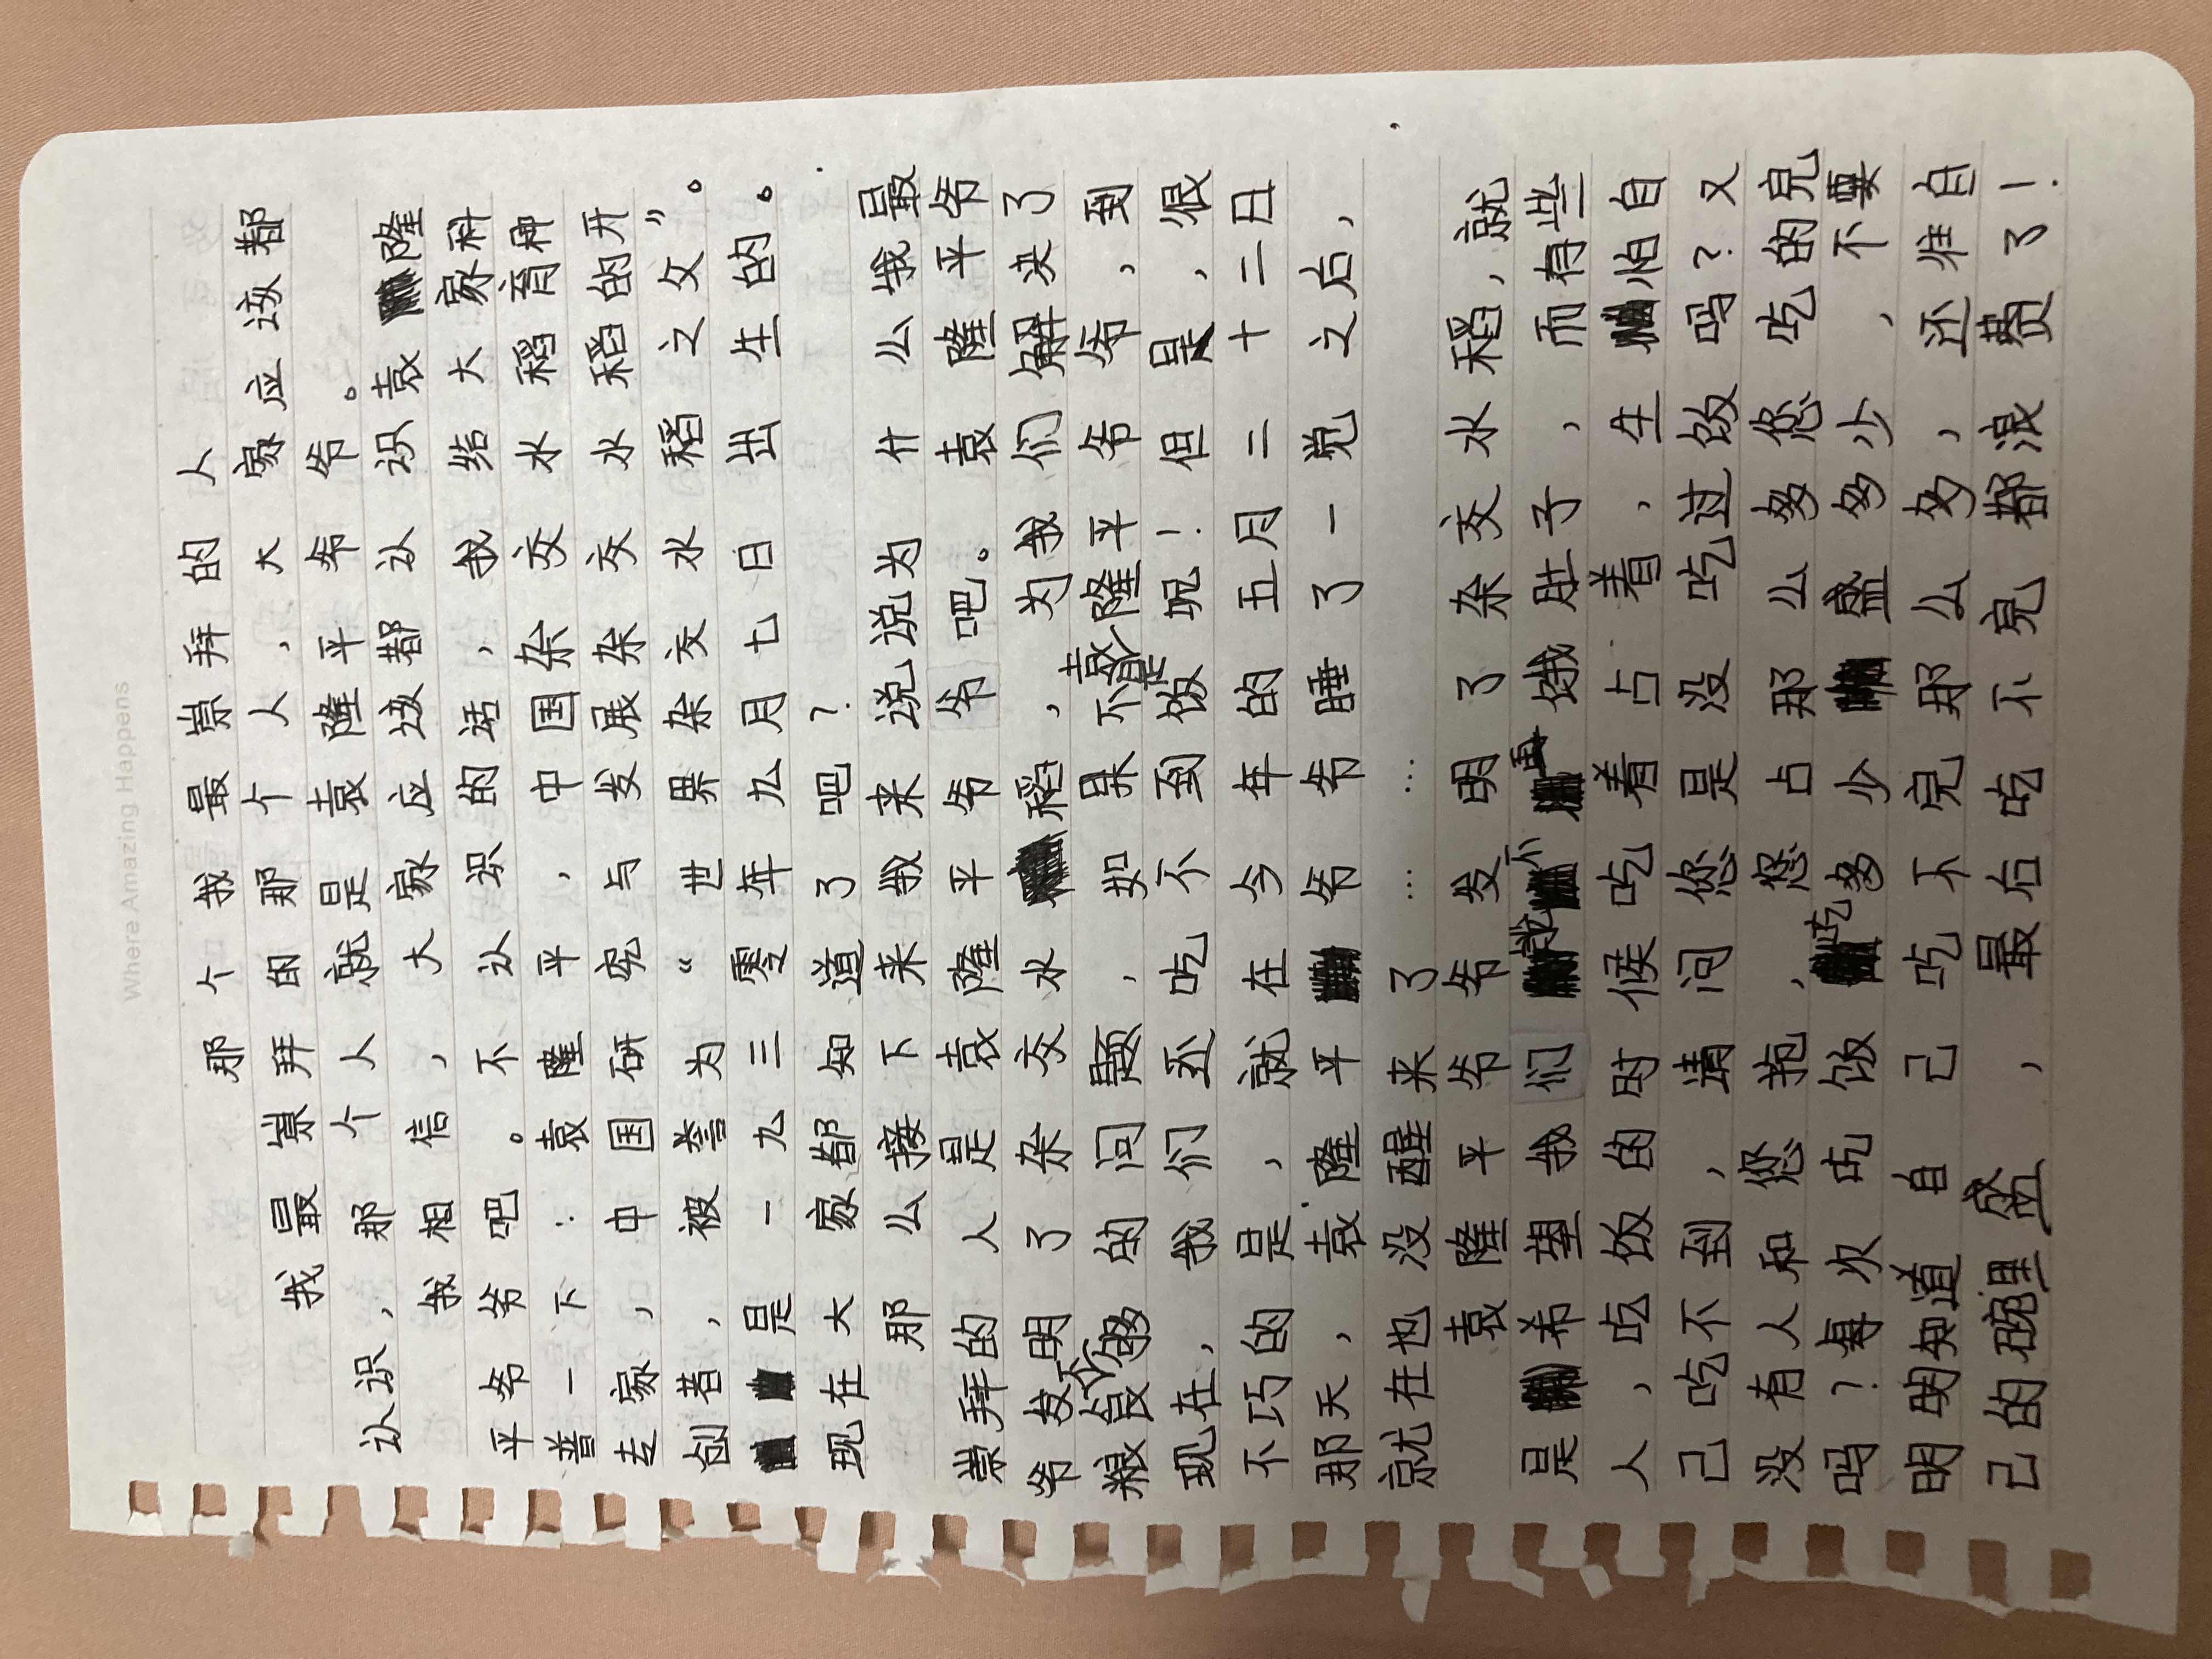 Where Amazing Happens
那个我最崇拜的人
我最崇拜的那个人,大家应该都
认识,那个人就是袁隆平爷爷。
我相信,大家应该都认识袁隆
平爷爷吧。不认识的话,我给大家科
普一下:袁隆平,中国杂交水稻育种
专家,中国研究与发展杂交水稻的开
创者,被誉为“世界杂交水稻之父”。
是一九三零年九月七日出生的。
现在大家都知道了吧?
那么接下来我来说说为什么我最
崇拜的人是袁隆平爷爷吧。袁隆平爷
爷发明了杂交水稻,为我们解决了
粮食不够的问题,如果不是袁隆平爷爷,到
现在,我们还吃不到饭呢!但是,很
不巧的是,就在今年的五月二十二日
那天,袁隆平爷爷睡了一觉之后,
就在也没醒来了……
袁隆平爷爷发明了杂交水稻,就
是希望我们不再饿肚子,而有些
人,吃饭的时候吃着占着,生怕自
己吃不到,请问您是没吃过饭吗?又
没有人和您抢,您占那么多您吃的完
吗?每次吃饭吃多少盛多少,不要
明明知道自己吃不完那么多,还往自
己的碗里盛,最后吃不完都浪费了!